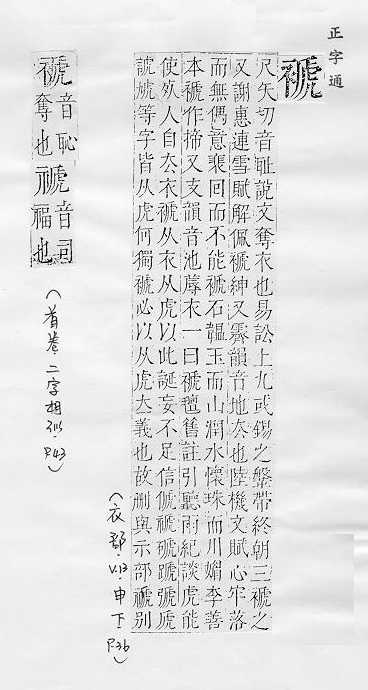 正字通
褫
尺矢切音耻說文奪衣也易訟上九或錫之鞶帶終朝三褫之
又謝惠連雪賦解佩褫紳又霽韻音地夻也陸機文賦心牢落
而無偶意裵回而不能褫石韞玉而山潤水懷珠而川媚李善
本褫作揥又支韻音池蓐衣一曰褫氊舊註引聽雨紀談虎能
使死人自去衣褫从衣从虎以此誕妄不足信傂禠磃蹏號虒
諕搋等字皆从虎何獨褫必以从虎夻義也故刪與示部禠別
(衣部.V.13.申下P.36)
褫音恥奪也禠音司福也
(首卷.二字相似.P.43)